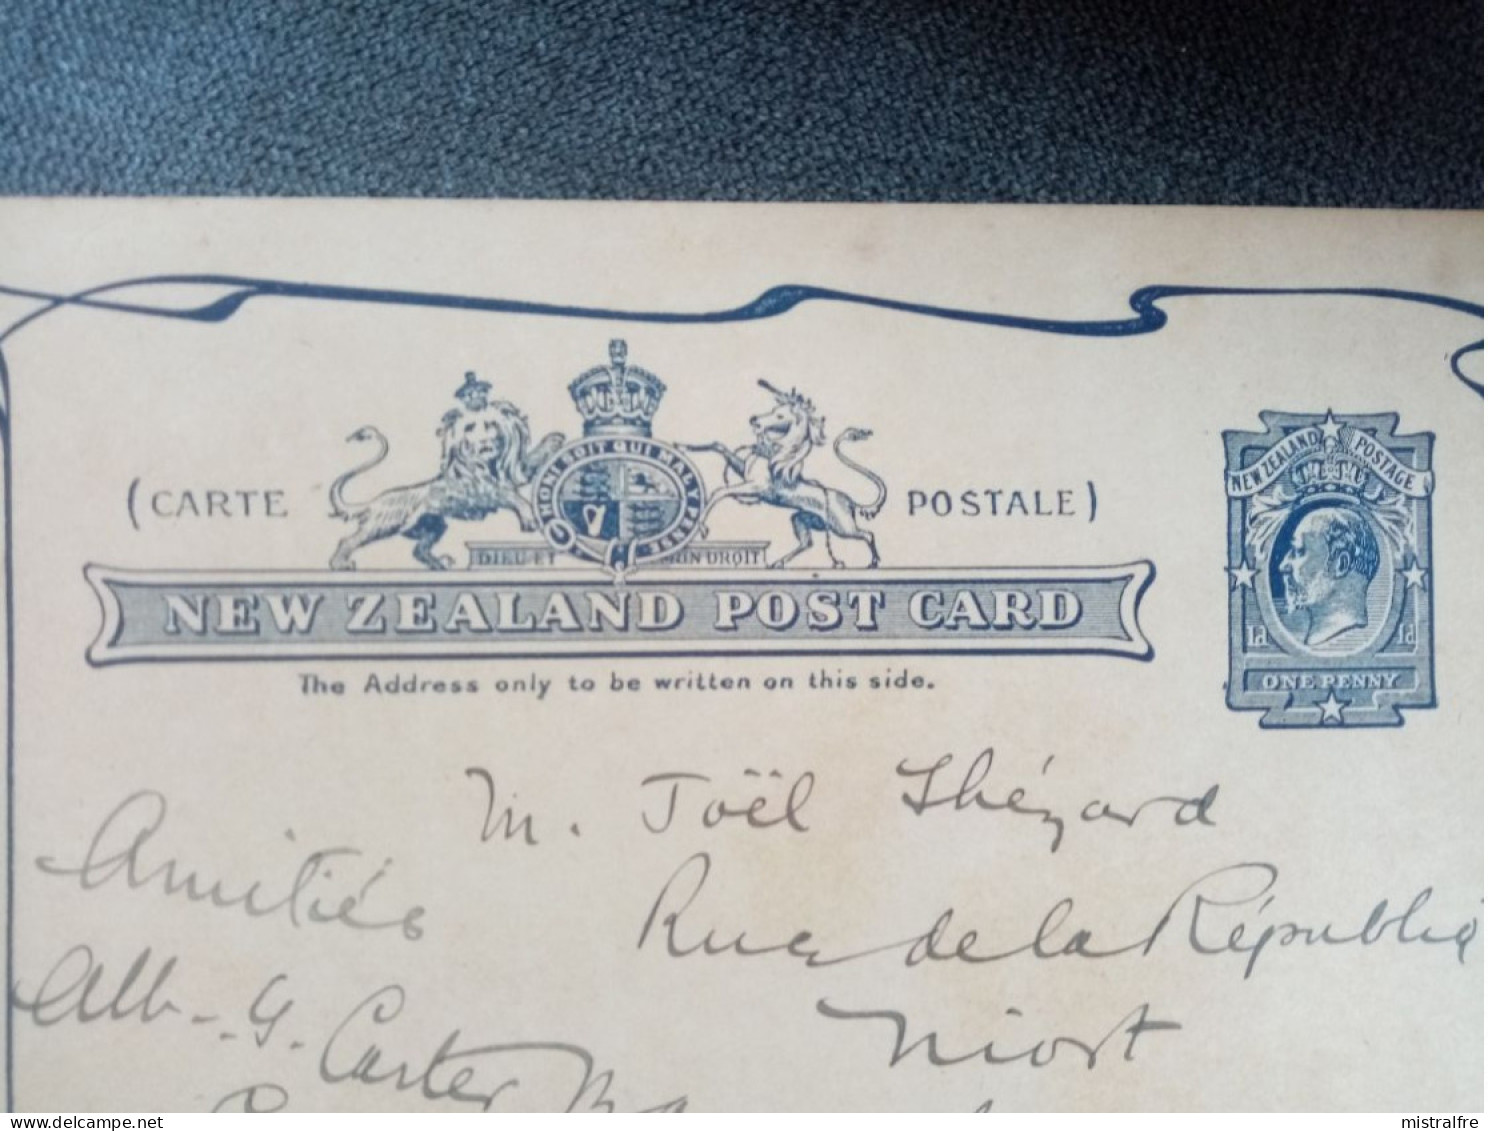 (CARTE POSTALE)
HONI SOIT QUI MAL Y PENSE
DIEU ET MON DROIT
NEW ZEALAND POST CARD
The Address only to be written on this side.
NEW ZEALAND POSTAGE
1d 1d
ONE PENNY
M. Joël Thézard
Rue de la République
Niort
Amitiés
Alb. G. Carter
mistralfre